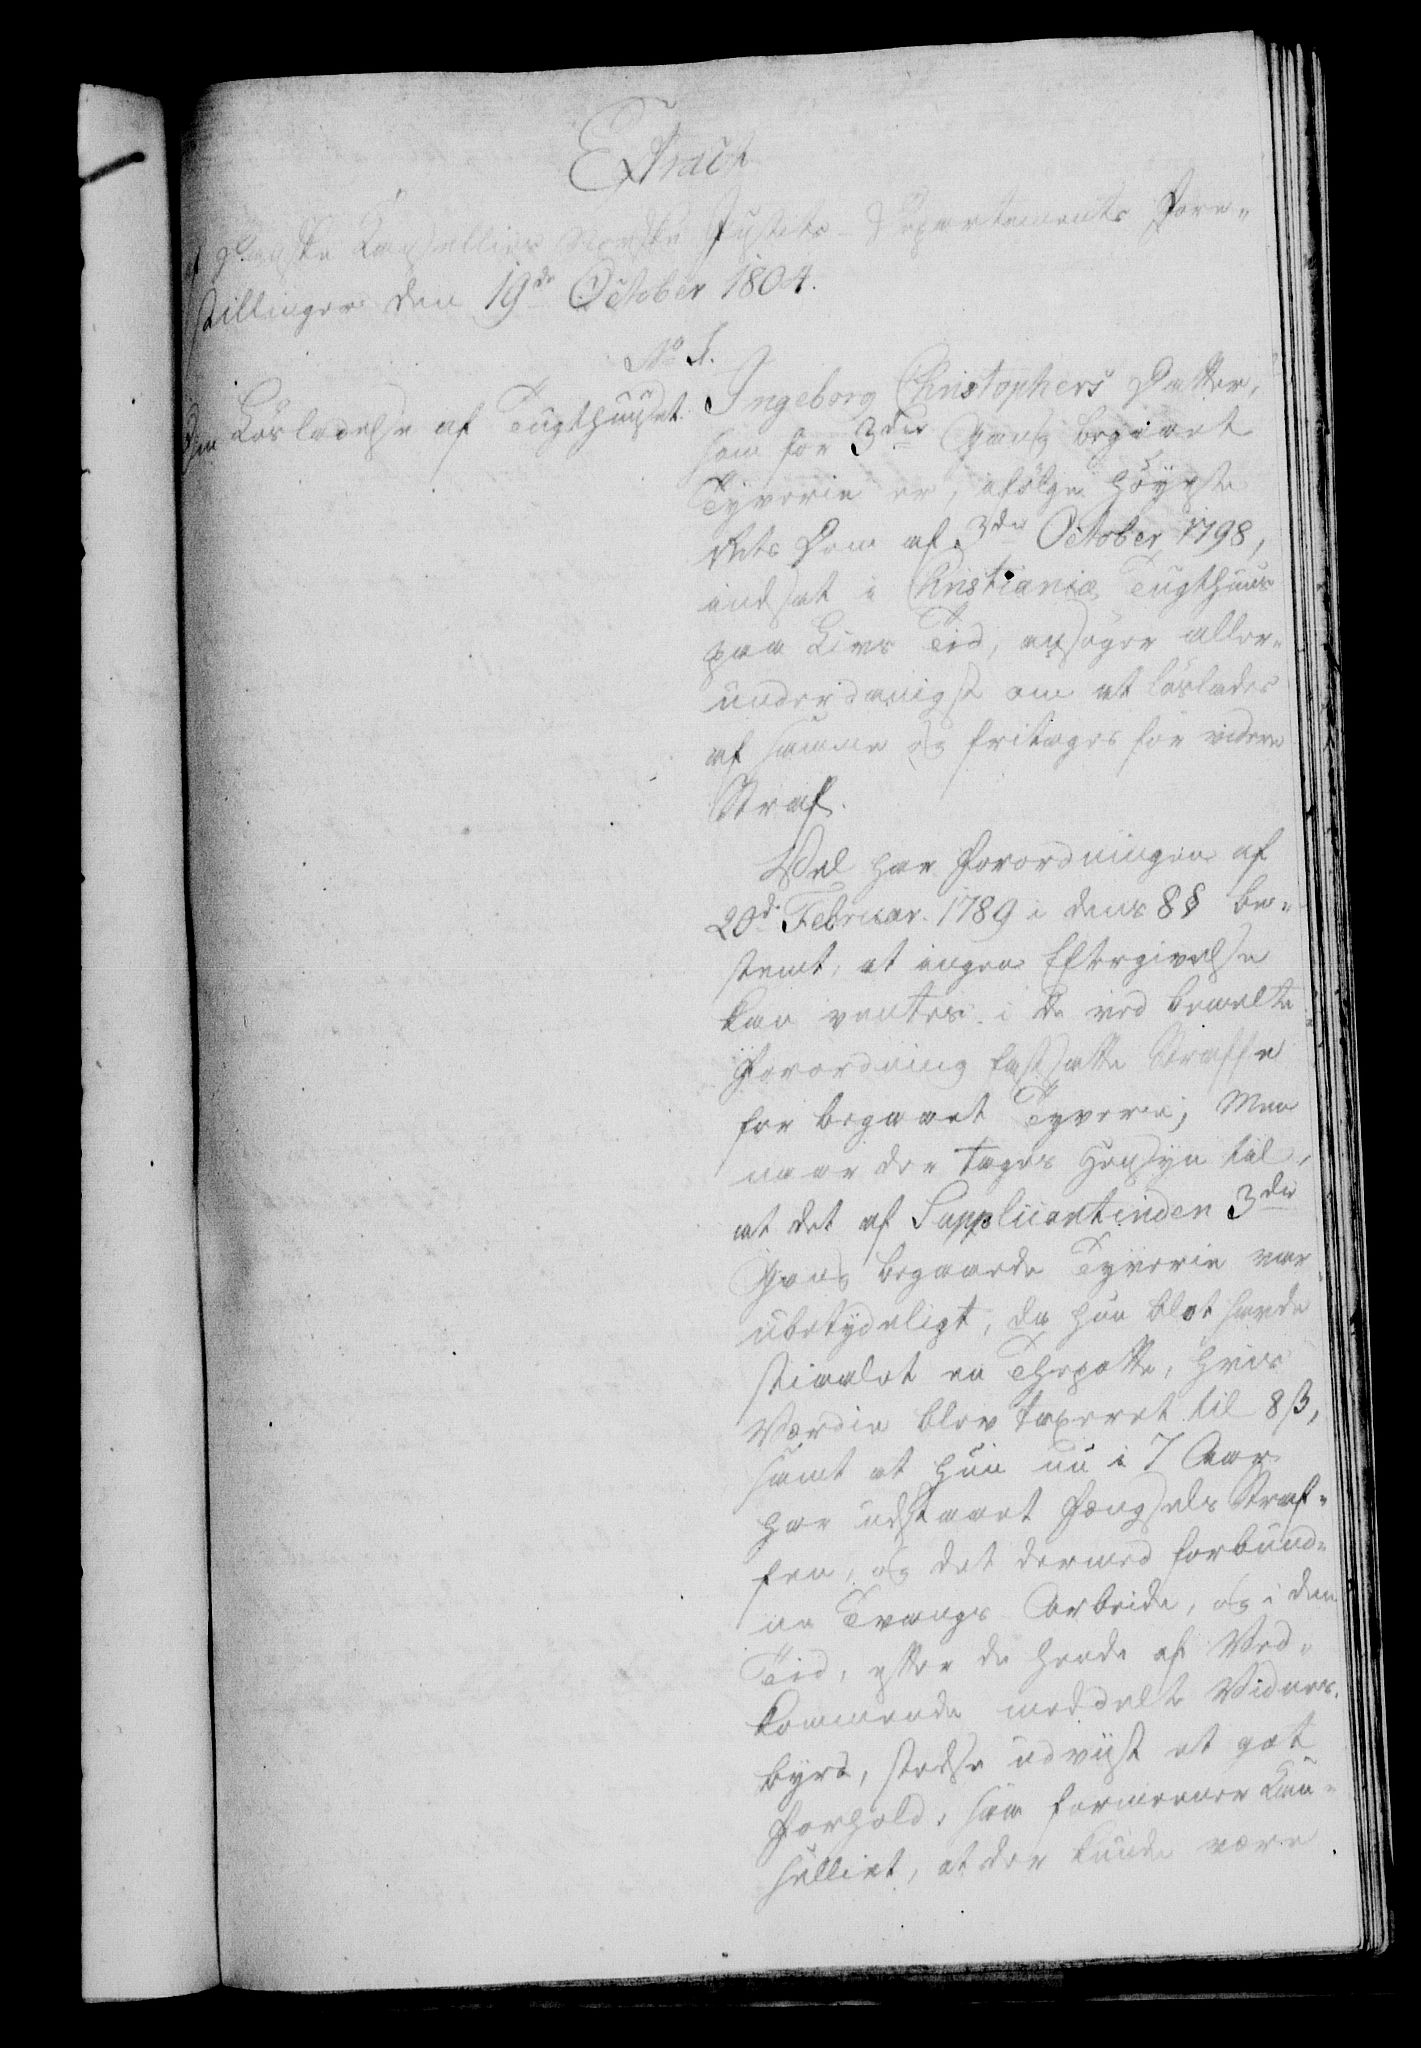 Extract
af Danske Cancellies Norske Justits-Departements Fore-
stillinger den 19de October 1804.
No 1.
Om Løsladelse af Tugthuuset.
Ingeborg Christophers Datter,
som for 3die Gang begaaet
Tyverie er, ifølge Høyeste
Rets Dom af 3die October 1798,
indsat i Christiania Tugthuus
paa Livs Tid, ansøger aller-
underdanigst om at løslades
af samme og fritages for videre
Straf.
Vel har Forordningen af
20d Februar 1789 i dens 8§ be-
stemt, at ingen Eftergivelse
kan ventes i de ved bemelte
Forordning fastsatte Straffe
for begaaet Tyverie; Men
naar der tages Hensyn til,
at det af Supplicantinden 3die
Gang begaaede Tyverie var
ubetydeligt, da hun blot havde
stiaalet en Thepotte, hvis
Værdie blev taxeret til 8 ß,
samt at hun nu i 7 Aar
har udstaaet Fængsels Straf-
fen, og det dermed forbund-
ne Tvangs Arbeide, og i den
Tid, efter de hende af Ved-
kommende meddelte Vidnes-
byrd, stedse udviist et got
Forhold; saa formeener Can-
celliet, at der kunde være